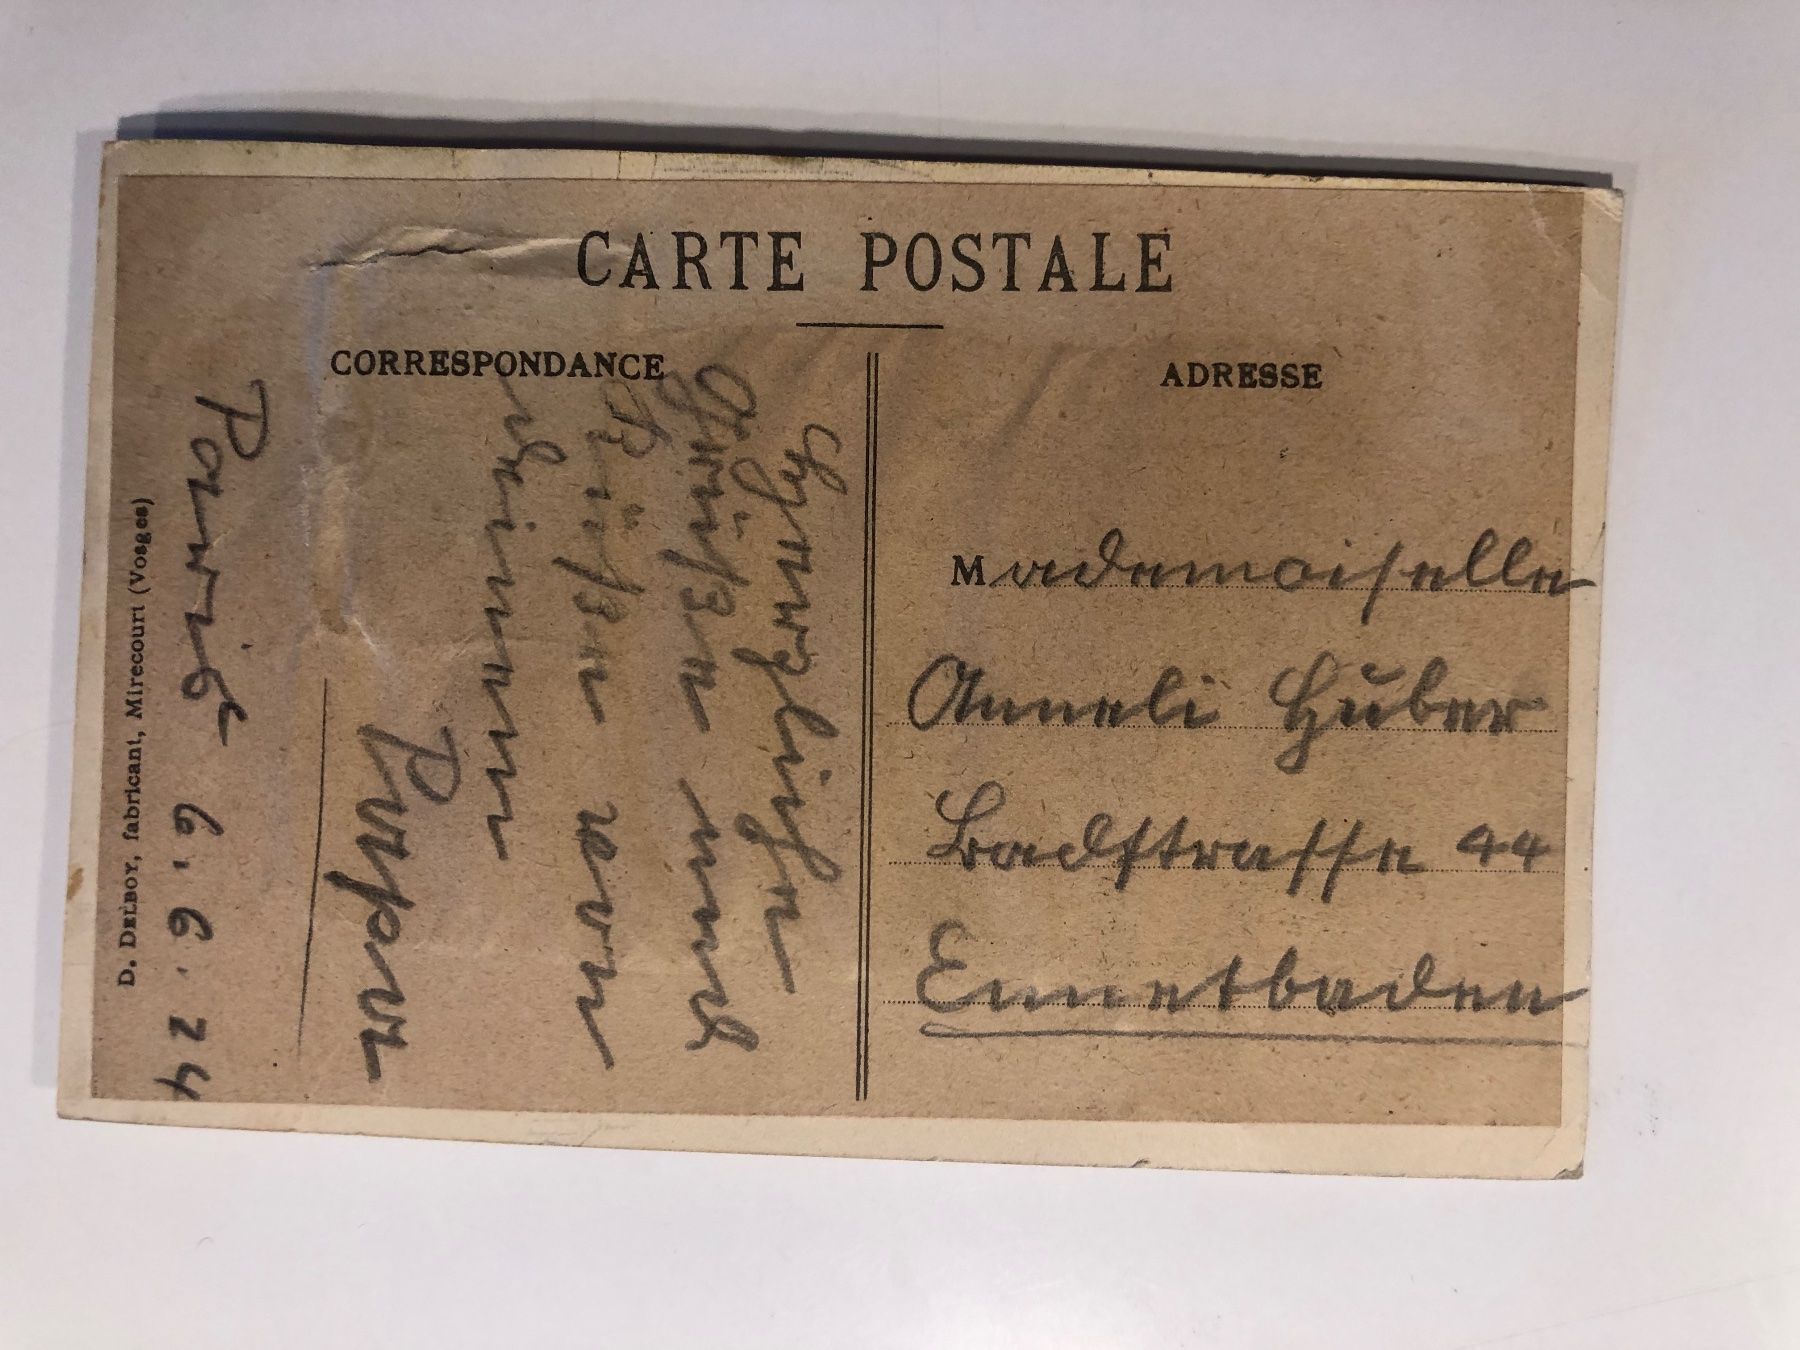 CARTE POSTALE
CORRESPONDANCE
ADRESSE
Mademoiselle
Anneli Huber
Badstrasse 44
Ennetbaden
Herzlichen
Grüßen und
Küßen von
Deinem
Papa
Paris 6.6.24
D. DELBOY, fabricant, Mirecourt (Vosges)